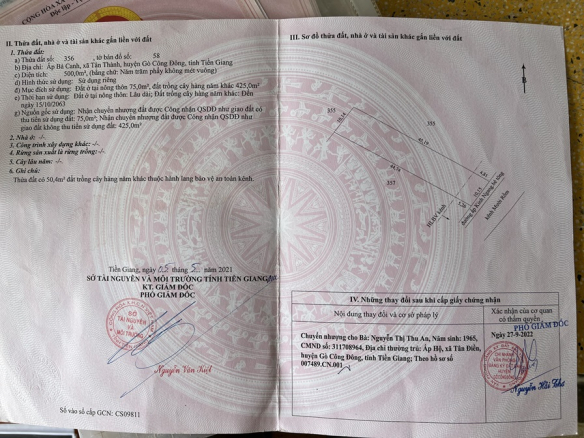 CỘNG HÒA X
Độc lập
II. Thửa đất, nhà ở và tài sản khác gắn liền với đất
1. Thửa đất:
a) Thửa đất số: 356 , tờ bản đồ số: 58
b) Địa chỉ: Ấp Bà Canh, xã Tân Thành, huyện Gò Công Đông, tỉnh Tiền Giang
c) Diện tích: 500,0m², (bằng chữ: Năm trăm phẩy không mét vuông)
d) Hình thức sử dụng: Sử dụng riêng
đ) Mục đích sử dụng: Đất ở tại nông thôn 75,0m²; đất trồng cây hàng năm khác 425,0m²
e) Thời hạn sử dụng: Đất ở tại nông thôn: Lâu dài; Đất trồng cây hàng năm khác: Đến
ngày 15/10/2063
g) Nguồn gốc sử dụng: Nhận chuyển nhượng đất được Công nhận QSDĐ như giao đất có
thu tiền sử dụng đất: 75,0m²; Nhận chuyển nhượng đất được Công nhận QSDĐ như
giao đất không thu tiền sử dụng đất: 425,0m²
2. Nhà ở: -/-
3. Công trình xây dựng khác: -/-
4. Rừng sản xuất là rừng trồng: -/-
5. Cây lâu năm: -/-
6. Ghi chú:
Thửa đất có 50,4m² đất trồng cây hàng năm khác thuộc hành lang bảo vệ an toàn kênh.
Tiền Giang, ngày 05 tháng 5 năm 2021
SỞ TÀI NGUYÊN VÀ MÔI TRƯỜNG TỈNH TIỀN GIANG
KT. GIÁM ĐỐC
PHÓ GIÁM ĐỐC
SỞ
TÀI NGUYÊN
VÀ
MÔI TRƯỜNG
Nguyễn Văn Kiệt
Số vào sổ cấp GCN: CS09811
III. Sơ đồ thửa đất, nhà ở và tài sản khác gắn liền với đất
B
355
355
357
45,19
4,81
HLBV kênh
kênh Mười Rắm
IV. Những thay đổi sau khi cấp giấy chứng nhận
Nội dung thay đổi và cơ sở pháp lý
Xác nhận của cơ quan
có thẩm quyền
Chuyển nhượng cho Bà: Nguyễn Thị Thu An, Năm sinh: 1965,
CMND số: 311708964, Địa chỉ thường trú: Ấp Hộ, xã Tân Điền,
huyện Gò Công Đông, tỉnh Tiền Giang; Theo hồ sơ số
007489.CN.001
PHÓ GIÁM ĐỐC
Ngày 27-9-2022